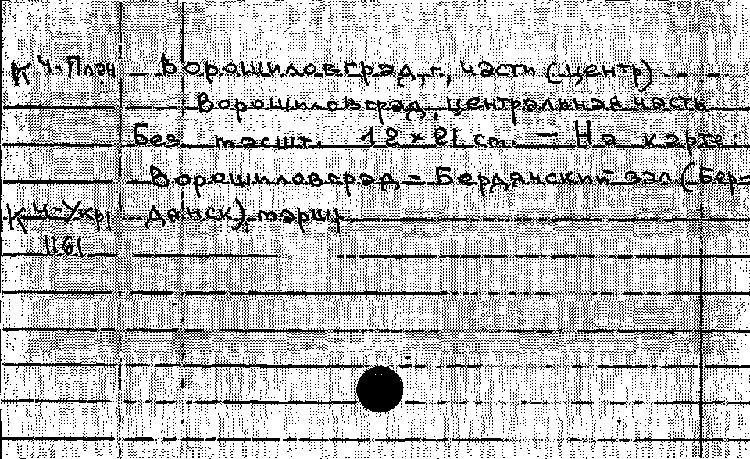 К 4-План Ворошиловград, г., части (центр)
Ворошиловград, центральная часть
Без масшт. 18 × 21 см. — На карте:
Ворошиловград – Бердянский зал (Бер-
К 4-Укр дянск), маршр.
1161